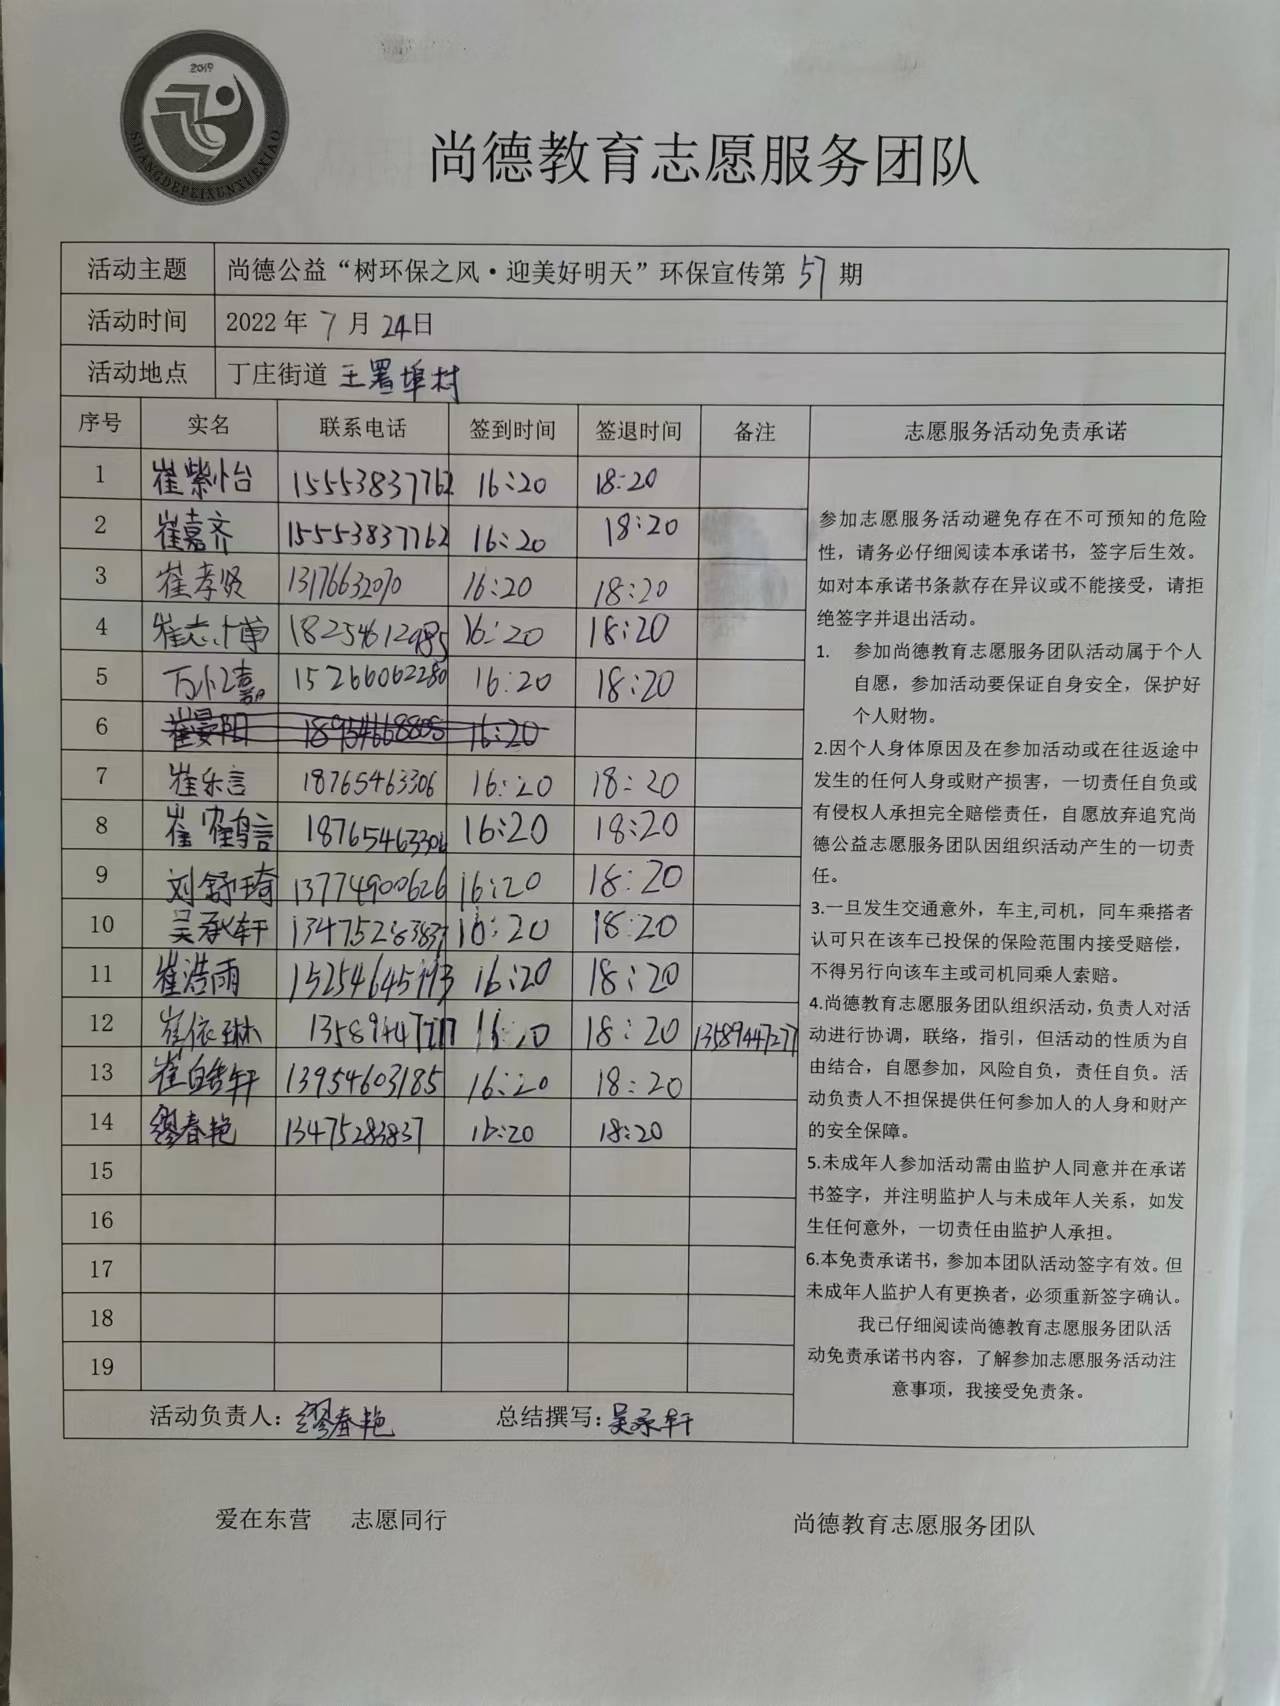 2019
SHANGDEPEIXUNXUEXIAO
尚德教育志愿服务团队
活动主题 尚德公益“树环保之风·迎美好明天”环保宣传第 57 期
活动时间 2022 年 7 月 24日
活动地点 丁庄街道 王署埠村
序号 实名 联系电话 签到时间 签退时间 备注 志愿服务活动免责承诺
1 崔紫怡 15553837762 16:20 18:20
2 崔嘉齐 15553837762 16:20 18:20
3 崔孝贤 13176632070 16:20 18:20
4 崔志博 18254612985 16:20 18:20
5 15266062280 16:20 18:20
6 崔晏阳 18954668805 16:20
7 崔乐言 18765463306 16:20 18:20
8 崔鹤言 18765463306 16:20 18:20
9 刘舒琦 13774900626 16:20 18:20
10 吴承轩 13475283837 16:20 18:20
11 崔浩雨 16:20 18:20
12 崔依琳 16:20 18:20 13589447277
13 崔皓轩 13954603185 16:20 18:20
14 缪春艳 13475283837 16:20 18:20
15
16
17
18
19
参加志愿服务活动避免存在不可预知的危险
性，请务必仔细阅读本承诺书，签字后生效。
如对本承诺书条款存在异议或不能接受，请拒
绝签字并退出活动。
1. 参加尚德教育志愿服务团队活动属于个人
自愿，参加活动要保证自身安全，保护好
个人财物。
2.因个人身体原因及在参加活动或在往返途中
发生的任何人身或财产损害，一切责任自负或
有侵权人承担完全赔偿责任，自愿放弃追究尚
德公益志愿服务团队因组织活动产生的一切责
任。
3.一旦发生交通意外，车主,司机，同车乘搭者
认可只在该车已投保的保险范围内接受赔偿，
不得另行向该车主或司机同乘人索赔。
4.尚德教育志愿服务团队组织活动，负责人对活
动进行协调，联络，指引，但活动的性质为自
由结合，自愿参加，风险自负，责任自负。活
动负责人不担保提供任何参加人的人身和财产
的安全保障。
5.未成年人参加活动需由监护人同意并在承诺
书签字，并注明监护人与未成年人关系，如发
生任何意外，一切责任由监护人承担。
6.本免责承诺书，参加本团队活动签字有效。但
未成年人监护人有更换者，必须重新签字确认。
我已仔细阅读尚德教育志愿服务团队活
动免责承诺书内容，了解参加志愿服务活动注
意事项，我接受免责条。
活动负责人：缪春艳 总结撰写：吴承轩
爱在东营 志愿同行 尚德教育志愿服务团队